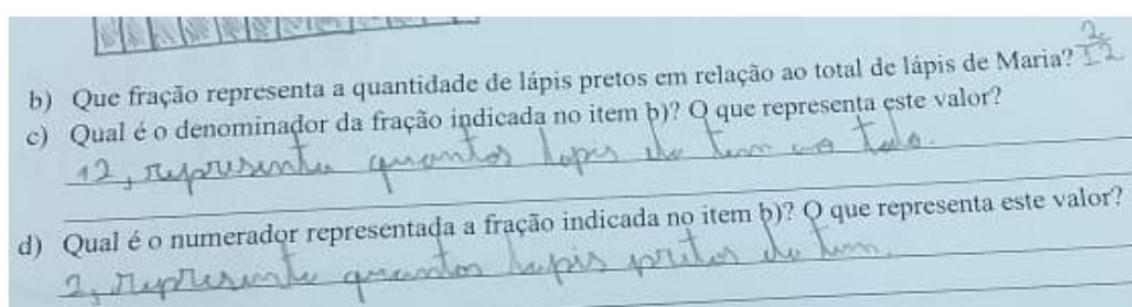 b) Que fração representa a quantidade de lápis pretos em relação ao total de lápis de Maria? 2/12
c) Qual é o denominador da fração indicada no item b)? O que representa este valor?
12, representa quantos lapis ela tem ao todo.
d) Qual é o numerador representada a fração indicada no item b)? O que representa este valor?
2, representa quantos lapis pretos ela tem.